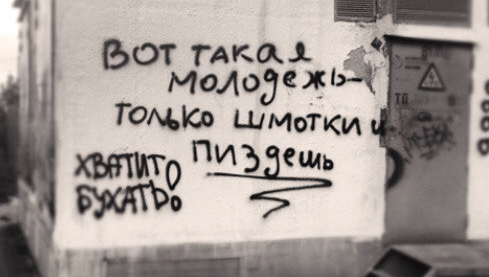 Вот такая
молодежь-
только шмотки и
пиздешь
ХВАТИТ
БУХАТЬ!